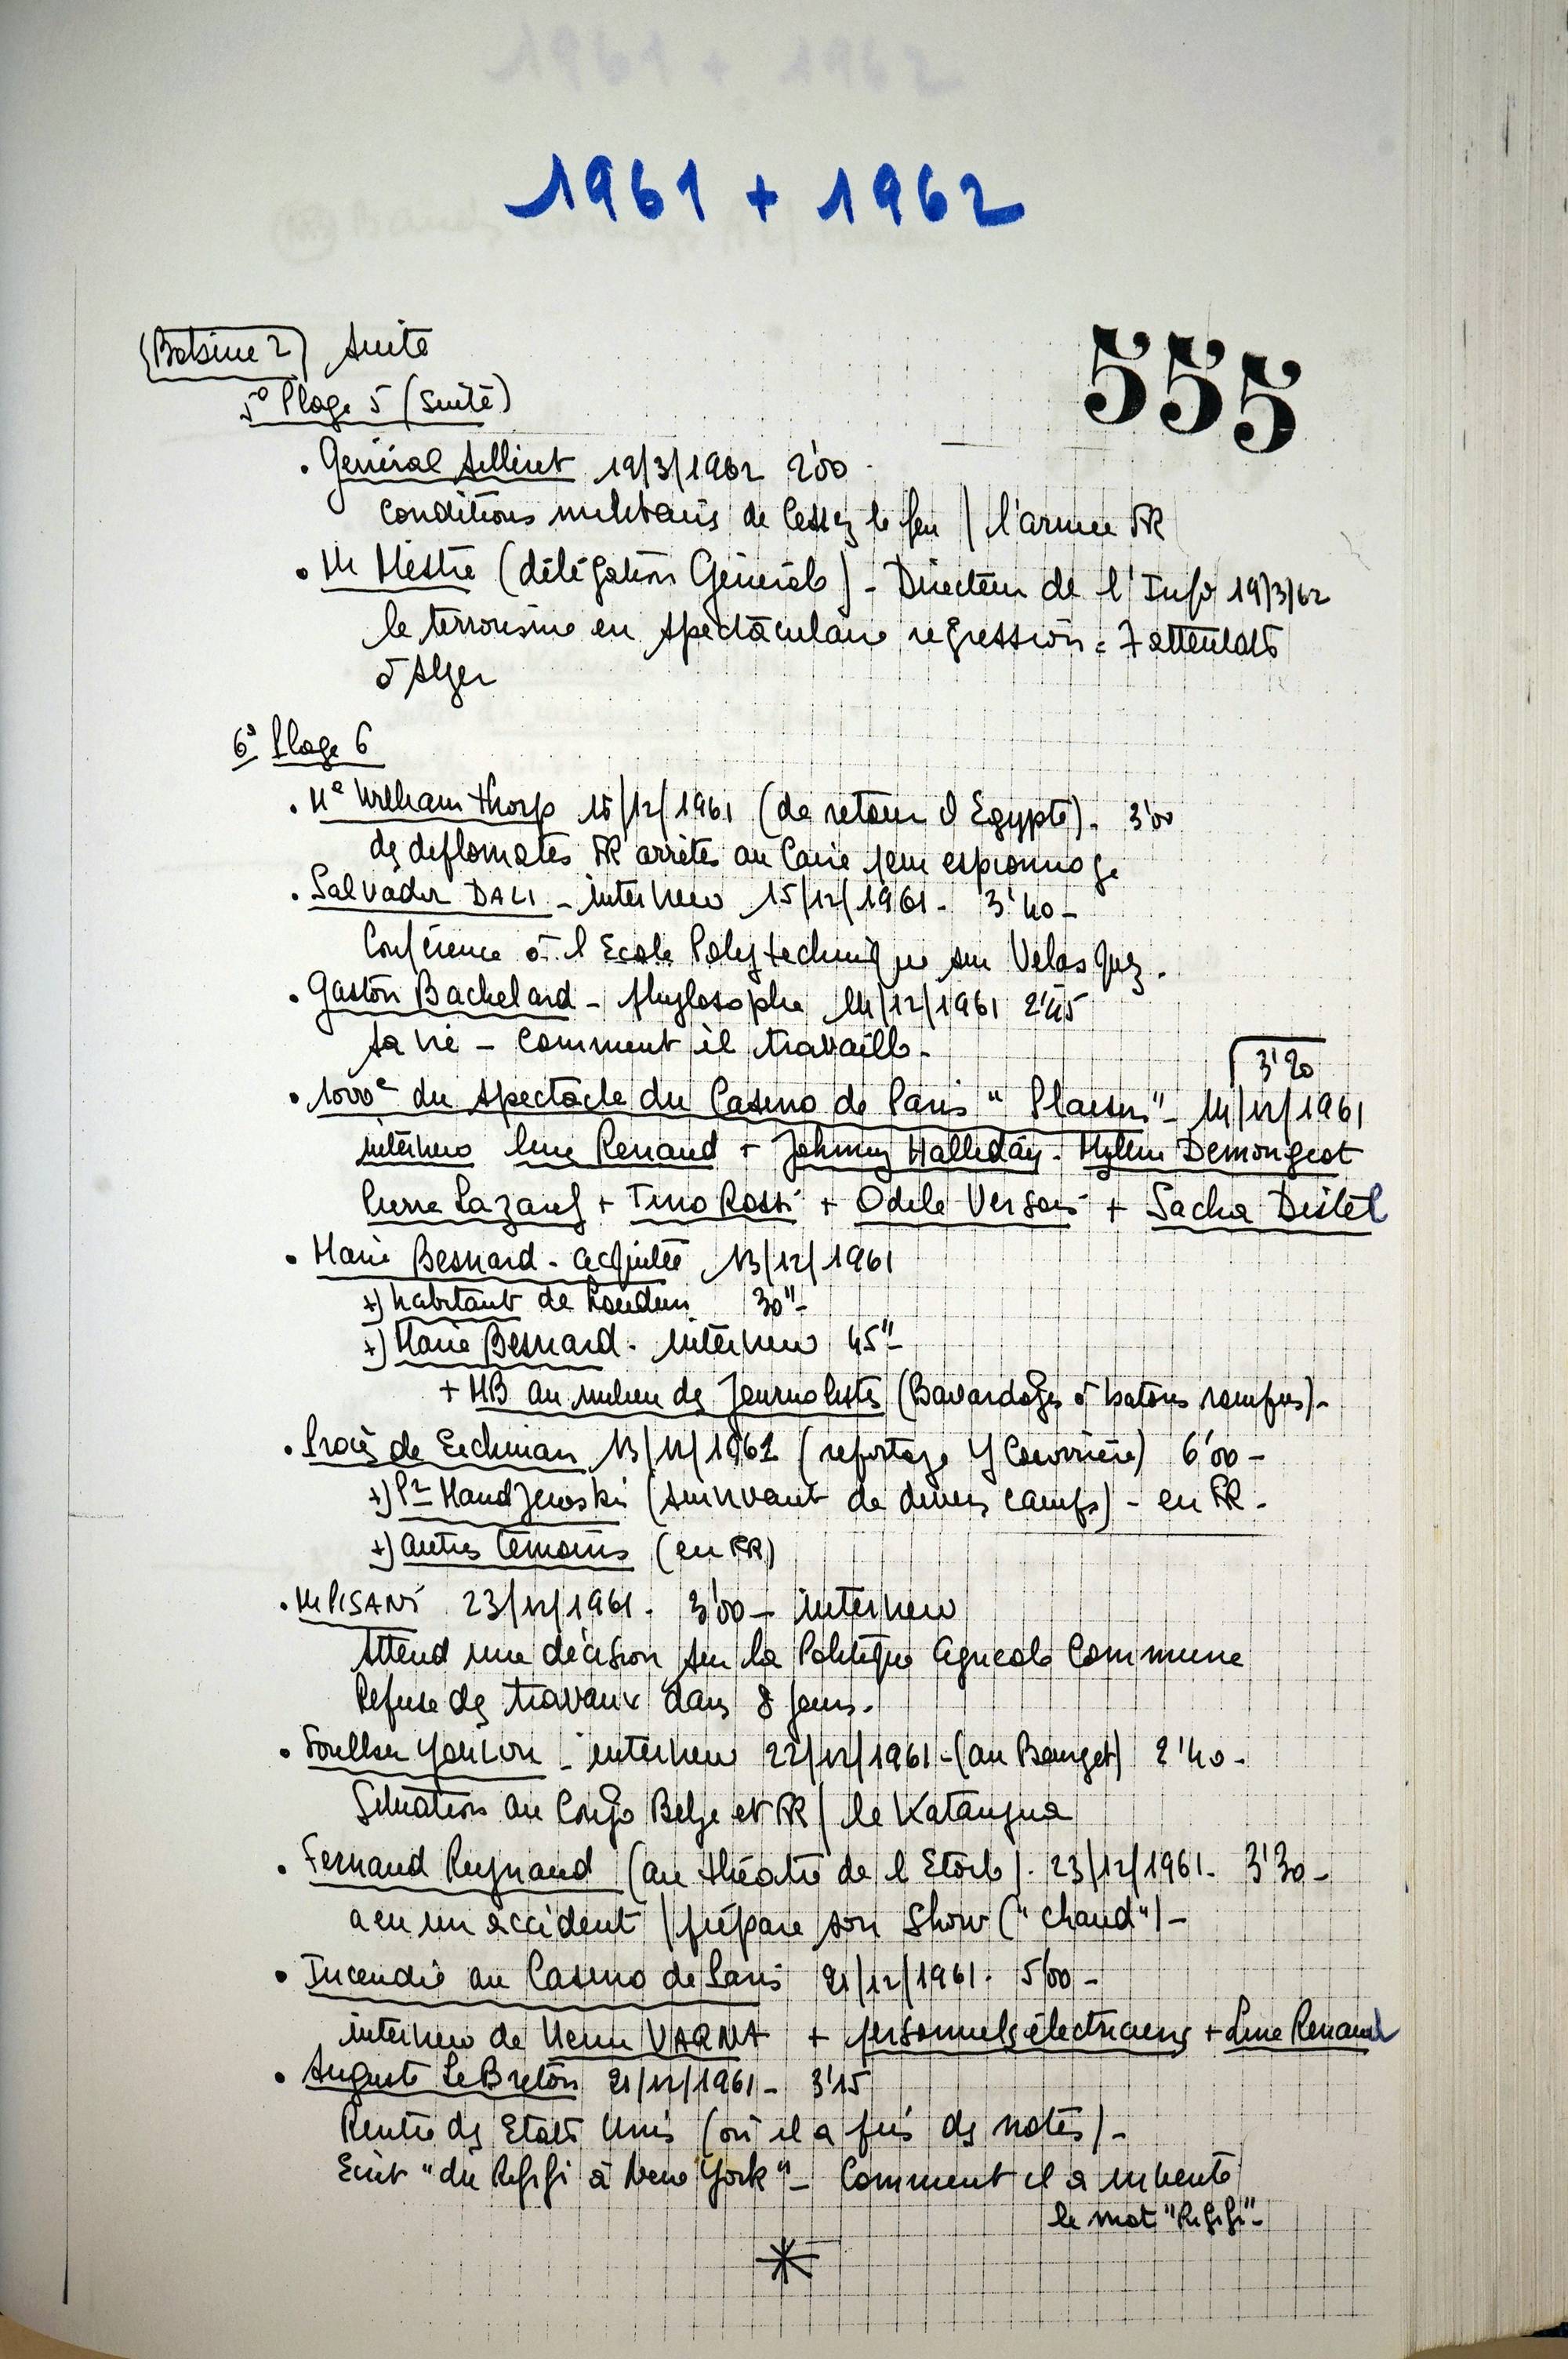 1961 + 1962
555
(Bobine 2) suite
5° Plage 5 (suite)
• Général Ailleret 19/3/1962 2'00
Conditions militaires de Cessez le feu / l'armée FR
• Mr Mestre (délégation Générale) - Directeur de l'Info 19/3/62
le terrorisme en spectaculaire régression = 7 attentats
à Alger
6° Plage 6
• Me William Thorp 15/12/1961 (de retour d'Egypte). 3'00
des diplomates FR arrêtés au Caire pour espionnage
• Salvador DALI - interview 15/12/1961 - 3'40 -
Conférence à l'Ecole Polytechnique sur Velasquez.
• Gaston Bachelard - phylosophe 14/12/1961 2'45
sa vie - comment il travaille -
3'20
• 1000e du spectacle du Casino de Paris "Plaisirs" - 14/12/1961
interview Line Renaud + Johnny Halliday - Mylène Demongeot
Pierre Lazareff + Tino Rossi + Odile Versois + Sacha Distel
• Marie Besnard - acquitée 13/12/1961
+) habitant de Loudun 30" -
+) Marie Besnard - interview 45" -
+ MB au milieu des journalistes (Bavardages à batons rompus) -
• Procès de Eichman 13/12/1961 (reportage Y Courrière) 6'00 -
+) Pr (survivant de divers camps) - en FR -
+) autres témoins (en FR)
• Mr PISANI 23/12/1961 - 3'00 - interview
Attend une décision sur la Politique agricole Commune
Refuse des travaux dans 8 jours.
• interview 22/12/1961 - (au Bourget) 2'40 -
Situation au Congo Belge et FR / le Katangua
• Fernand Reynaud (au théatre de l'Etoile) - 23/12/1961 - 3'30 -
a eu un accident / prépare son Show ("chaud") -
• Incendie au Casino de Paris 21/12/1961 - 5'00 -
interview de Henri VARNA + personnels électriciens + Line Renaud
• Auguste Le Breton 21/12/1961 - 3'15
Rentre des Etats Unis (où il a pris des notes) -
Ecrit "du Rififi à New York" - Comment il a inventé
le mot "Rififi" -